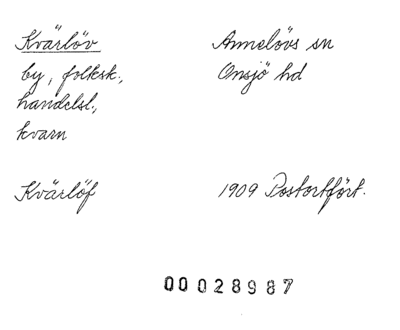 Kvärlöv
Annelövs sn
by, folksk.,
Onsjö hd
handelsl.,
kvarn
Kvärlöf
1909 Postortfört.
00028987